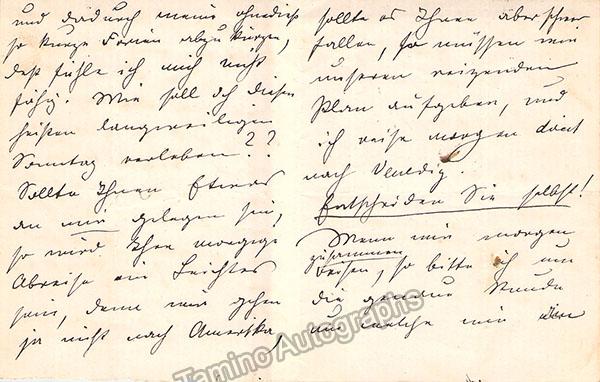 und dadurch meine ohnedieß
so kurze Ferien abzukürzen,
deß fühle ich mich nicht
fähig. Wie soll ich diesen
heißen langweiligen
Sonntag verleben??
Sollte Ihnen Etwas
an mir gelegen sein,
so wird Ihre morgige
Abreise ein Leichtes
sein, denn wir gehen
ja nicht nach Amerika,
sollte es Ihnen aber schwer
fallen, so müssen wir
unseren reizenden
Plan aufgeben, und
ich reise morgen direct
nach Venedig.
Entscheiden Sie selbst!
Wenn wir morgen
zusammen
reisen, so bitte ich um
die genaue Stunde
um welche wir
Tamino Autographs